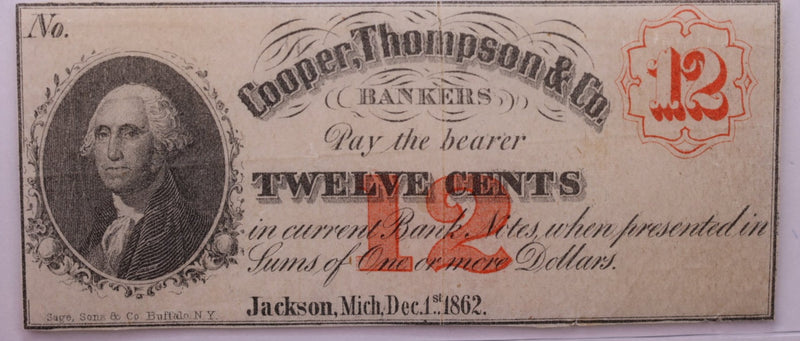 No.
Cooper, Thompson & Co.
12
BANKERS
Pay the bearer
TWELVE CENTS
12
in current Bank Notes, when presented in
Sums of One or more Dollars.
Jackson, Mich, Dec. 1st 1862.
Sage, Sons & Co. Buffalo N.Y.